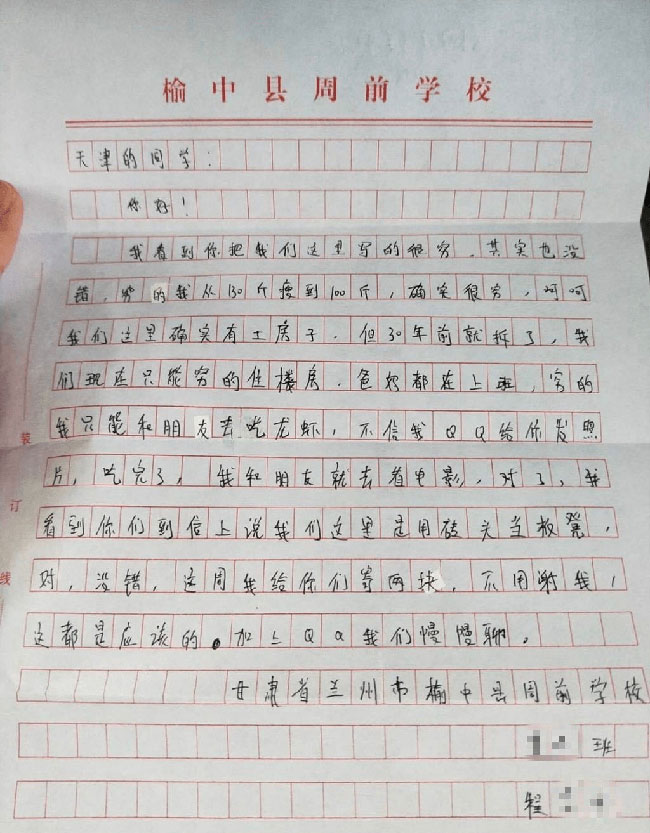 榆中县周前学校
天津的同学：
你好！
我看到你把我们这里写的很穷，其实也没
错，穷的我从130斤瘦到100斤，确实很穷，呵呵
我们这里确实有土房子．但30年前就拆了，我
们现在只能穷的住楼房．爸妈都在上班，穷的
我只能和朋友去吃龙虾，不信我QQ给你发照
片，吃完了，我和朋友就去看电影，对了，我
看到你们到信上说我们这里是用砖头当板凳，
对，没错，这周我给你们寄两块，不用谢我，
这都是应该的。加上QQ我们慢慢聊．
甘肃省兰州市榆中县周前学校
班
程
装
订
线